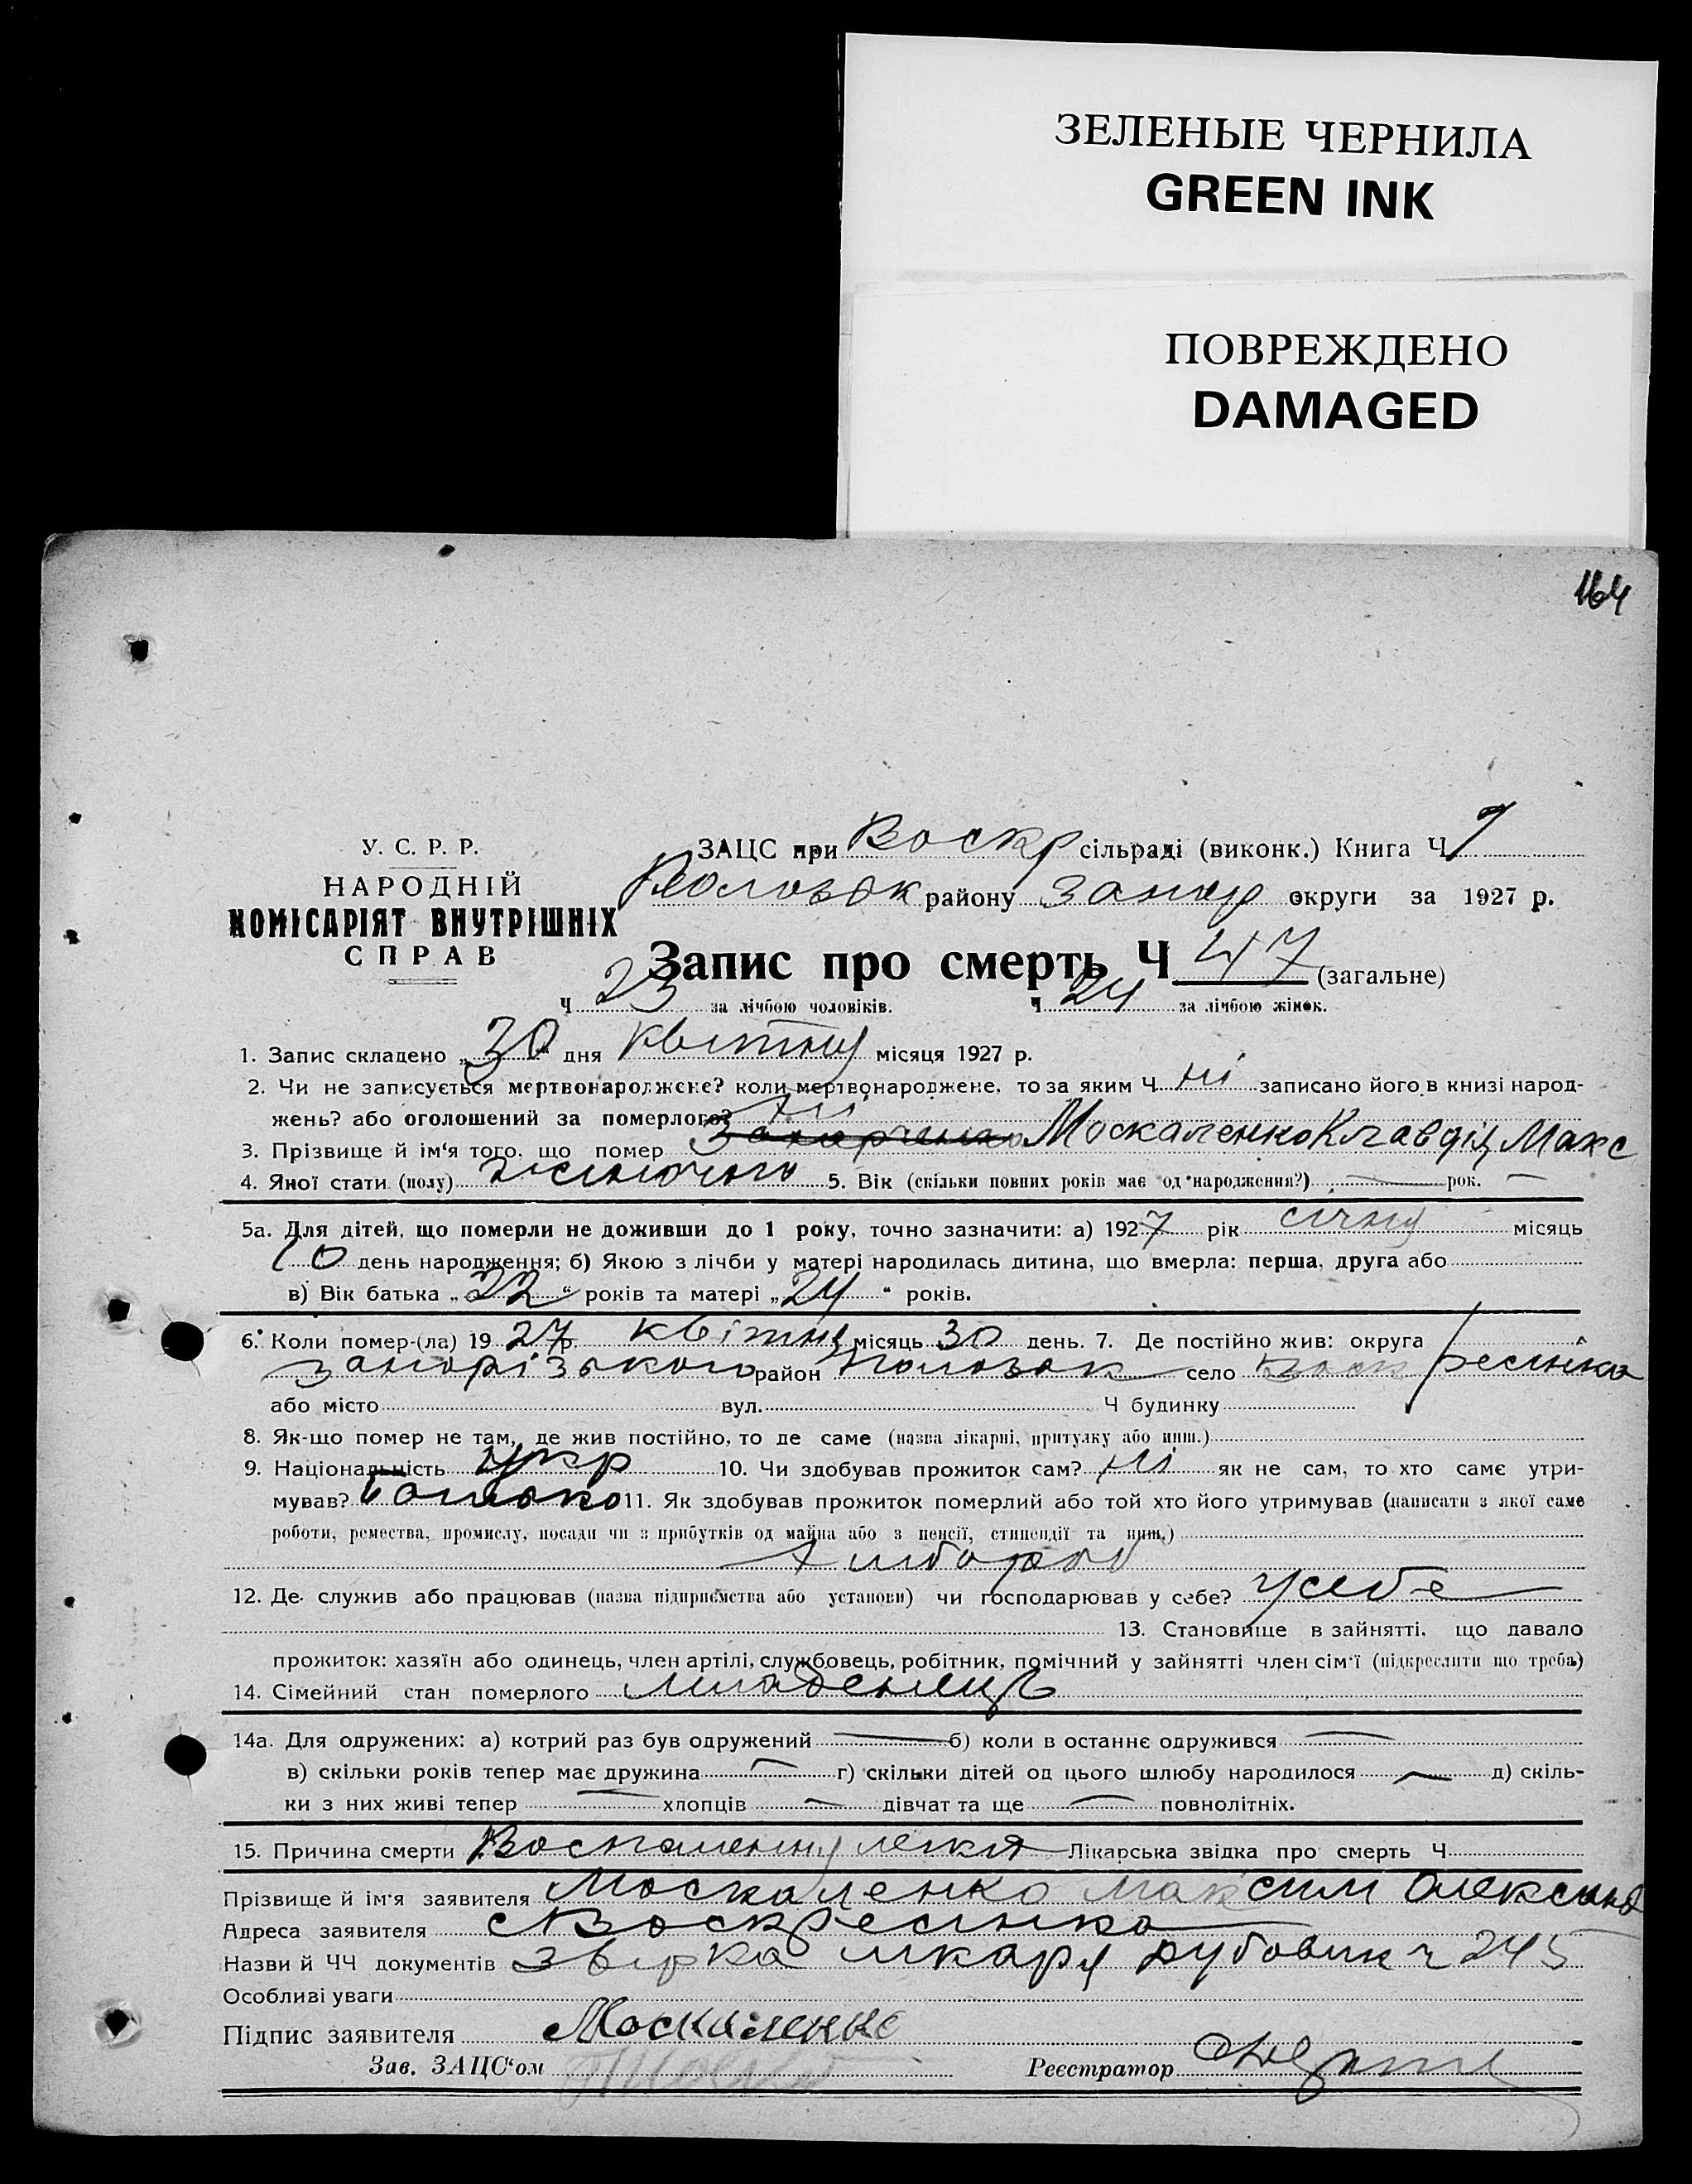 ЗЕЛЕНЫЕ ЧЕРНИЛА
GREEN INK
ПОВРЕЖДЕНО
DAMAGED
164
У. С. Р. Р.
НАРОДНІЙ
КОМІСАРІЯТ ВНУТРІШНІХ
СПРАВ
ЗАЦС при Воскр сільраді (виконк.) Книга Ч
району Запор округи за 1927 р.
Запис про смерть Ч 47 (загальне)
Ч 23 за лічбою чоловіків. Ч 24 за лічбою жінок.
1. Запис складено „30“ дня квітня місяця 1927 р.
2. Чи не записується мертвонароджене? коли мертвонароджене, то за яким Ч ні записано його в книзі народ-
жень? або оголошений за померлого? ні
3. Прізвище й ім‘я того, що помер Москаленко Клавдія Макс
4. Якої стати (полу) жіночого 5. Вік (скільки повних років має од народження?) — рок. —
5а. Для дітей, що померли не доживши до 1 року, точно зазначити: а) 1927 рік січня місяць
10 день народження; б) Якою з лічби у матері народилась дитина, що вмерла: перша, друга або
в) Вік батька „22“ років та матері „24“ років.
6. Коли помер-(ла) 1927 р. квітня місяць 30 день. 7. Де постійно жив: округа
запорізького район Полозьк село Воскресенка
або місто вул. Ч будинку
8. Як-що помер не там, де жив постійно, то де саме (назва лікарні, притулку або инш.)
9. Національність укр 10. Чи здобував прожиток сам? ні як не сам, то хто самє утри-
мував? батько 11. Як здобував прожиток померлий або той хто його утримував (написати з якої саме
роботи, ремества, промислу, посади чи з прибутків од майна або з пенсії, стипендії та инш.)
хлібороб
12. Де служив або працював (назва підприємства або установи) чи господарював у себе? у себе
13. Становище в зайнятті, що давало
прожиток: хазяїн або одинець, член артілі, службовець, робітник, помічний у зайнятті член сім‘ї (підкреслити що треба)
14. Сімейний стан померлого младенець
14а. Для одружених: а) котрий раз був одружений — б) коли в останнє одружився —
в) скільки років тепер має дружина — г) скільки дітей од цього шлюбу народилося — д) скіль-
ки з них живі тепер — хлопців — дівчат та ще — повнолітніх.
15. Причина смерти Воспаления легкя Лікарська звідка про смерть Ч
Прізвище й ім‘я заявителя Москаленко Максим Олександ
Адреса заявителя с Воскресенка
Назви й ЧЧ документів лікаря Дубовик ч 245
Особливі уваги
Підпис заявителя Москаленко
Зав. ЗАЦС‘ом
Реєстратор